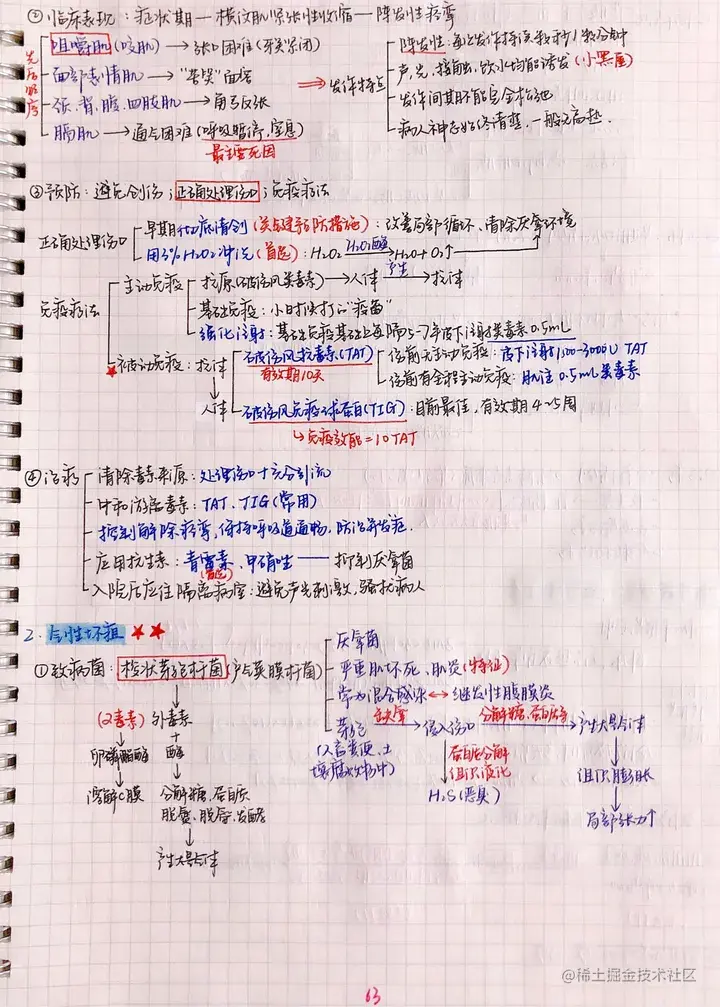 ② 临床表现: 症状期 — 横纹肌紧张性收缩 — 阵发性痉挛
先后顺序
咀嚼肌(咬肌) → 张口困难(牙关紧闭)
面部表情肌 → "苦笑"面容
颈、背、腹、四肢肌 → 角弓反张
膈肌 → 通气困难(呼吸暂停,窒息)
最主要死因
⇒ 发作特点
阵发性: 每次发作持续数秒/数分钟
声、光、接触、饮水均能诱发(小黑屋)
发作间期不能完全松弛
病人神志始终清楚,一般无高热.
③ 预防: 避免创伤; 正确处理伤口; 免疫疗法
正确处理伤口
早期彻底清创(关键预防措施): 改善局部循环、清除厌氧环境
用3% H2O2冲洗(首选): H2O2 H2O2酶→ H2O + O2↑
免疫疗法
主动免疫 — 抗原(破伤风类毒素) → 人体 产生→ 抗体
基础免疫: 小时候打的"疫苗"
强化注射: 基础免疫基础上每隔5-7年皮下注射类毒素0.5mL
★ 被动免疫: 抗体
↓
人体
破伤风抗毒素(TAT)
有效期10天
伤前无主动免疫: 皮下注射1500-3000U TAT
伤前有全程主动免疫: 肌注0.5mL类毒素
破伤风免疫球蛋白(TIG): 目前最佳,有效期4~5周
↳ 免疫效能=10TAT
④ 治疗
清除毒素来源: 处理伤口+充分引流
中和游离毒素: TAT、TIG(常用)
控制解除痉挛,保持呼吸道通畅,防治并发症.
应用抗生素: 青霉素、甲硝唑 —— 抑制厌氧菌
(首选)
入院后应住隔离病室: 避免声光刺激,骚扰病人
2. 气性坏疽 ★★
① 致病菌: 梭状芽孢杆菌(产气荚膜杆菌)
厌氧菌
严重肌坏死、肌炎(特征)
常为混合感染 ↔ 继发性腹膜炎
芽孢 缺氧→ 侵入伤口 分解糖、蛋白质→ 产生大量气体
(人畜粪便、土壤腐败物中)
蛋白质分解
组织液化
↓
H2S(恶臭)
↓
组织膨胀
↓
局部张力↑
(α毒素) 外毒素
↓ +
卵磷脂酶 酶
↓ ↓
溶解C膜 分解糖、蛋白质
脱氨、脱羧、发酵
↓
产生大量气体
63
@稀土掘金技术社区